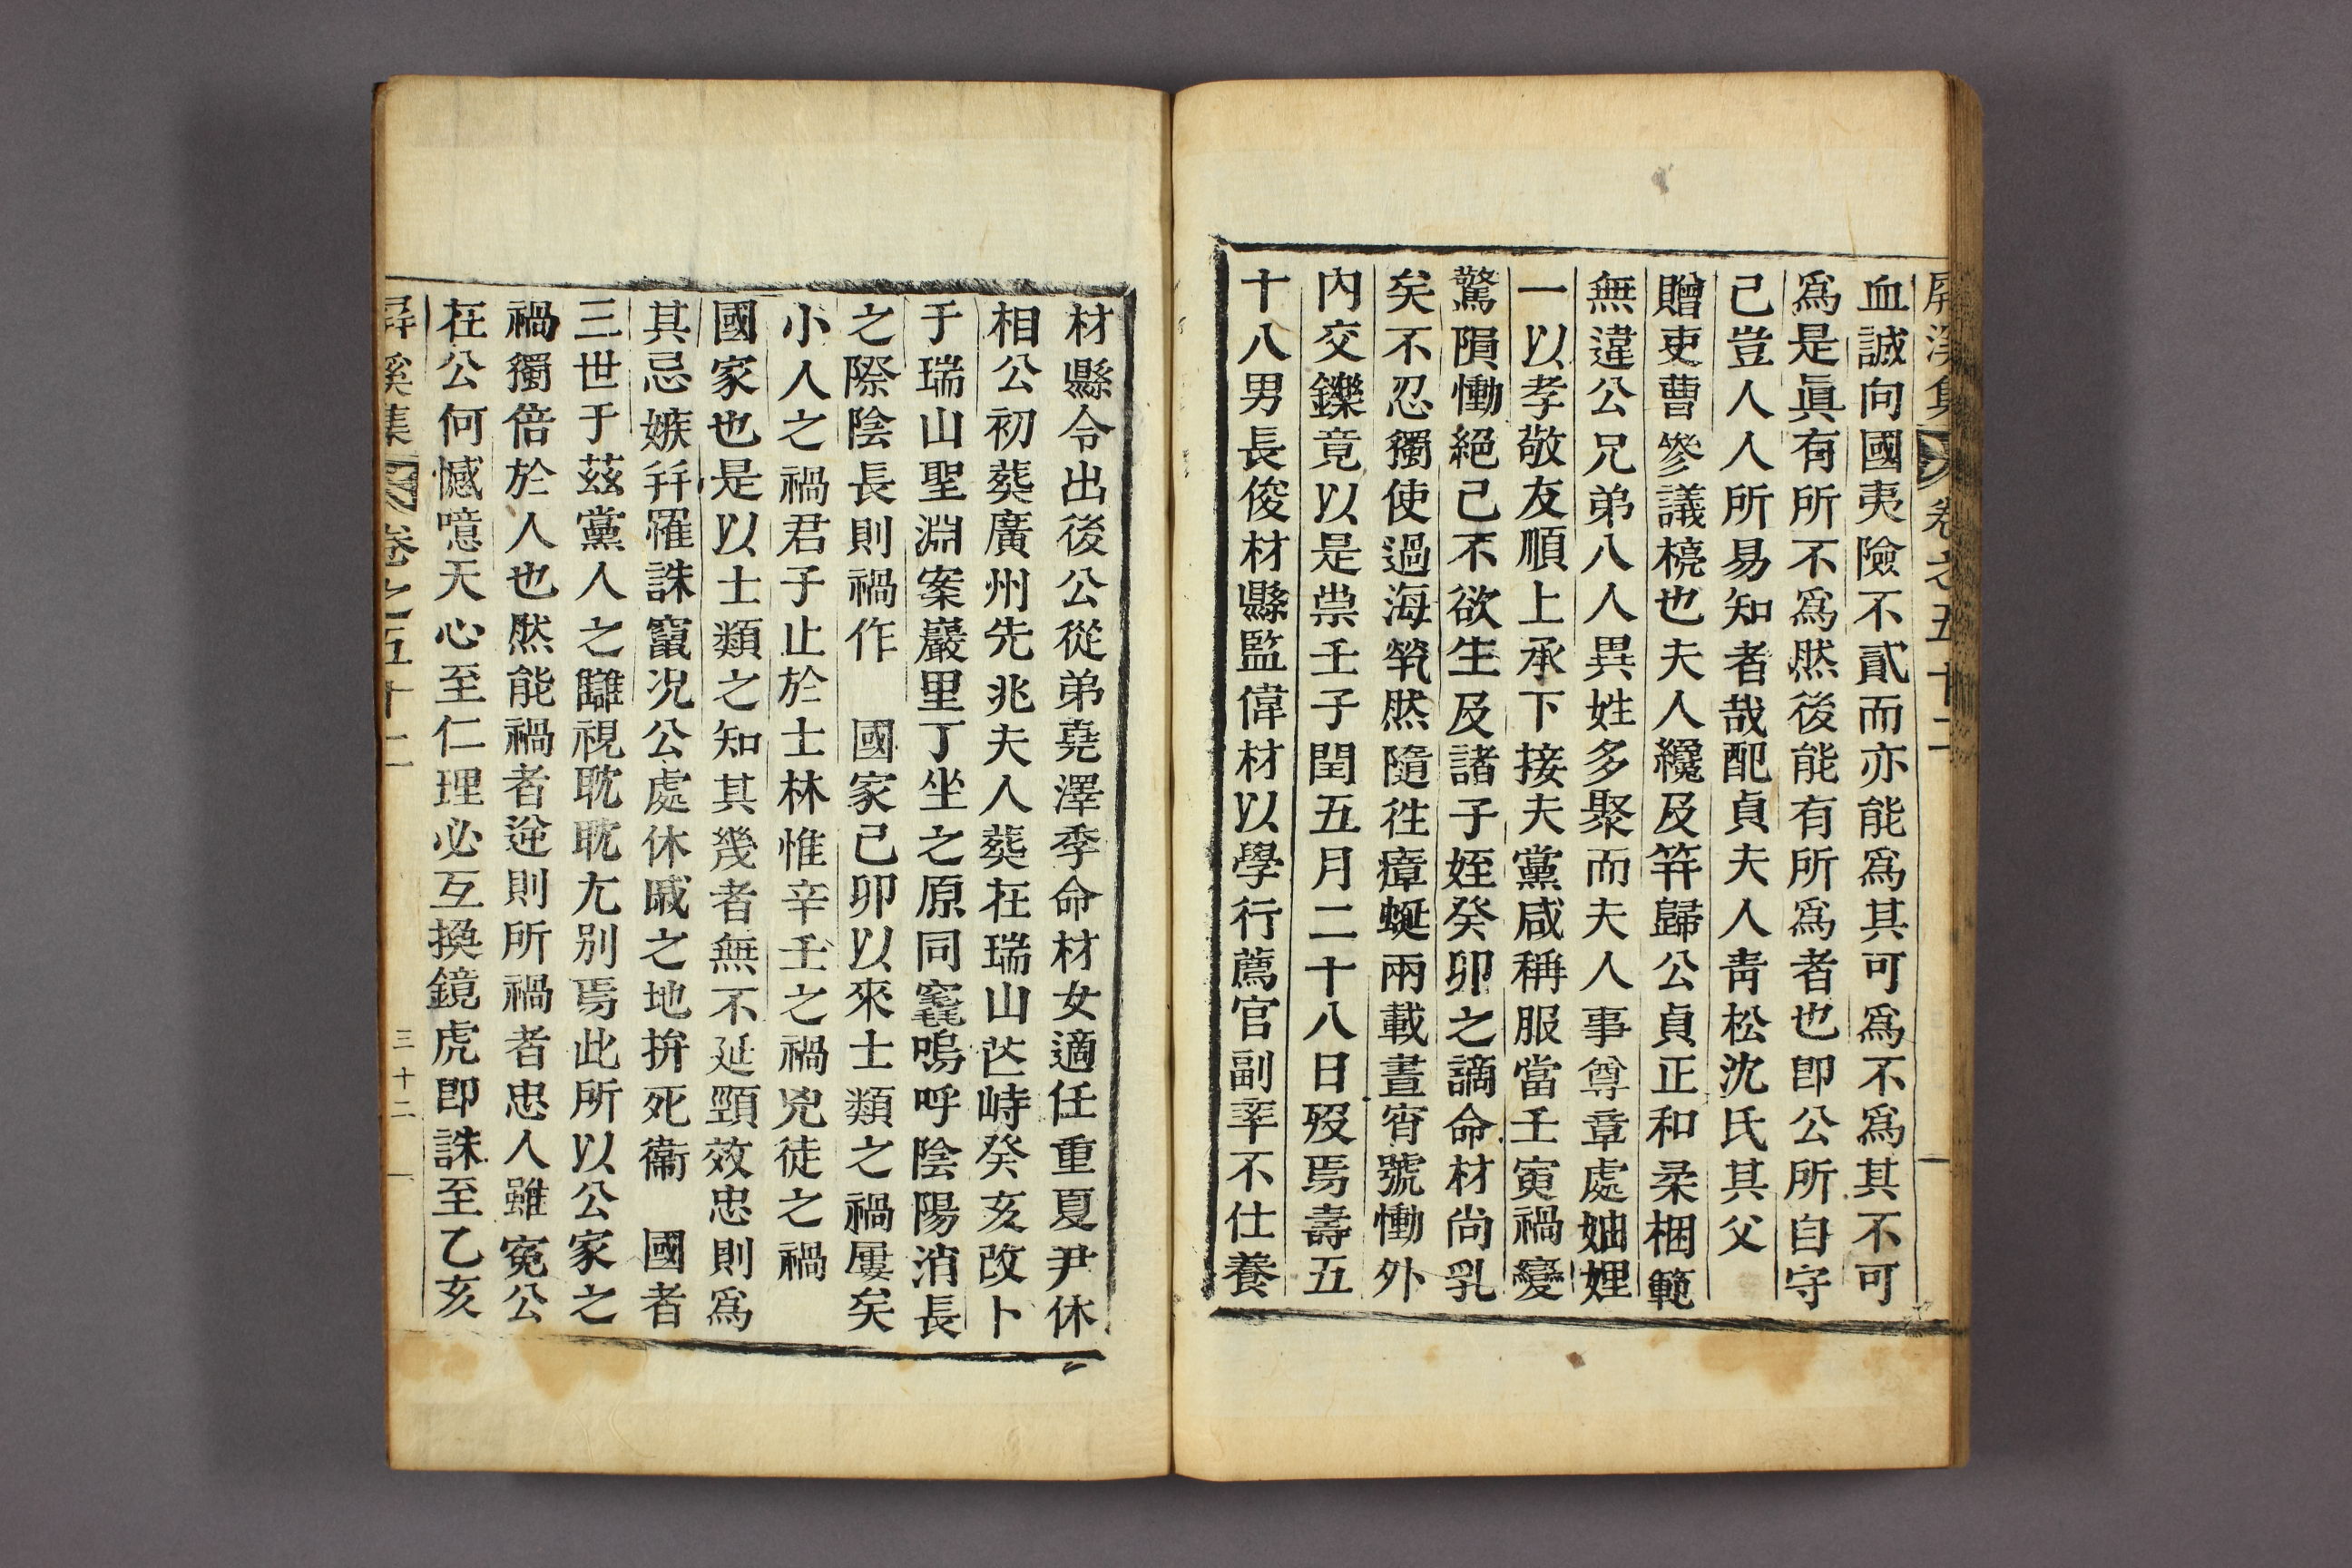 屏溪集 卷之五十二
血誠向國夷險不貳而亦能爲其可爲不爲其不可
爲是眞有所不爲然後能有所爲者也卽公所自守
己豈人人所易知者哉配貞夫人靑松沈氏其父
贈吏曹參議橈也夫人纔及笄歸公貞正和柔梱範
無違公兄弟八人異姓多聚而夫人事尊章處妯娌
一以孝敬友順上承下接夫黨咸稱服當壬寅禍變
驚隕慟絕己不欲生及諸子姪癸卯之謫命材尙乳
矣不忍獨使過海煢然隨徃瘴蜒兩載晝宵號慟外
內交鑠竟以是祟壬子閏五月二十八日歿焉壽五
十八男長俊材縣監偉材以學行薦官副率不仕養
材縣令出後公從弟堯澤季命材女適任重夏尹休
相公初葬廣州先兆夫人葬在瑞山芒峙癸亥改卜
于瑞山聖淵案巖里丁坐之原同窆嗚呼陰陽消長
之際陰長則禍作 國家己卯以來士類之禍屢矣
小人之禍君子止於士林惟辛壬之禍兇徒之禍
國家也是以士類之知其幾者無不延頸效忠則爲
其忌嫉幷罹誅竄況公處休戚之地拚死衞 國者
三世于茲黨人之讎視眈眈尤別焉此所以公家之
禍獨倍於人也然能禍者逆則所禍者忠人雖寃公
在公何憾噫天心至仁理必互換鏡虎卽誅至乙亥
屏溪集 卷之五十二 三十二